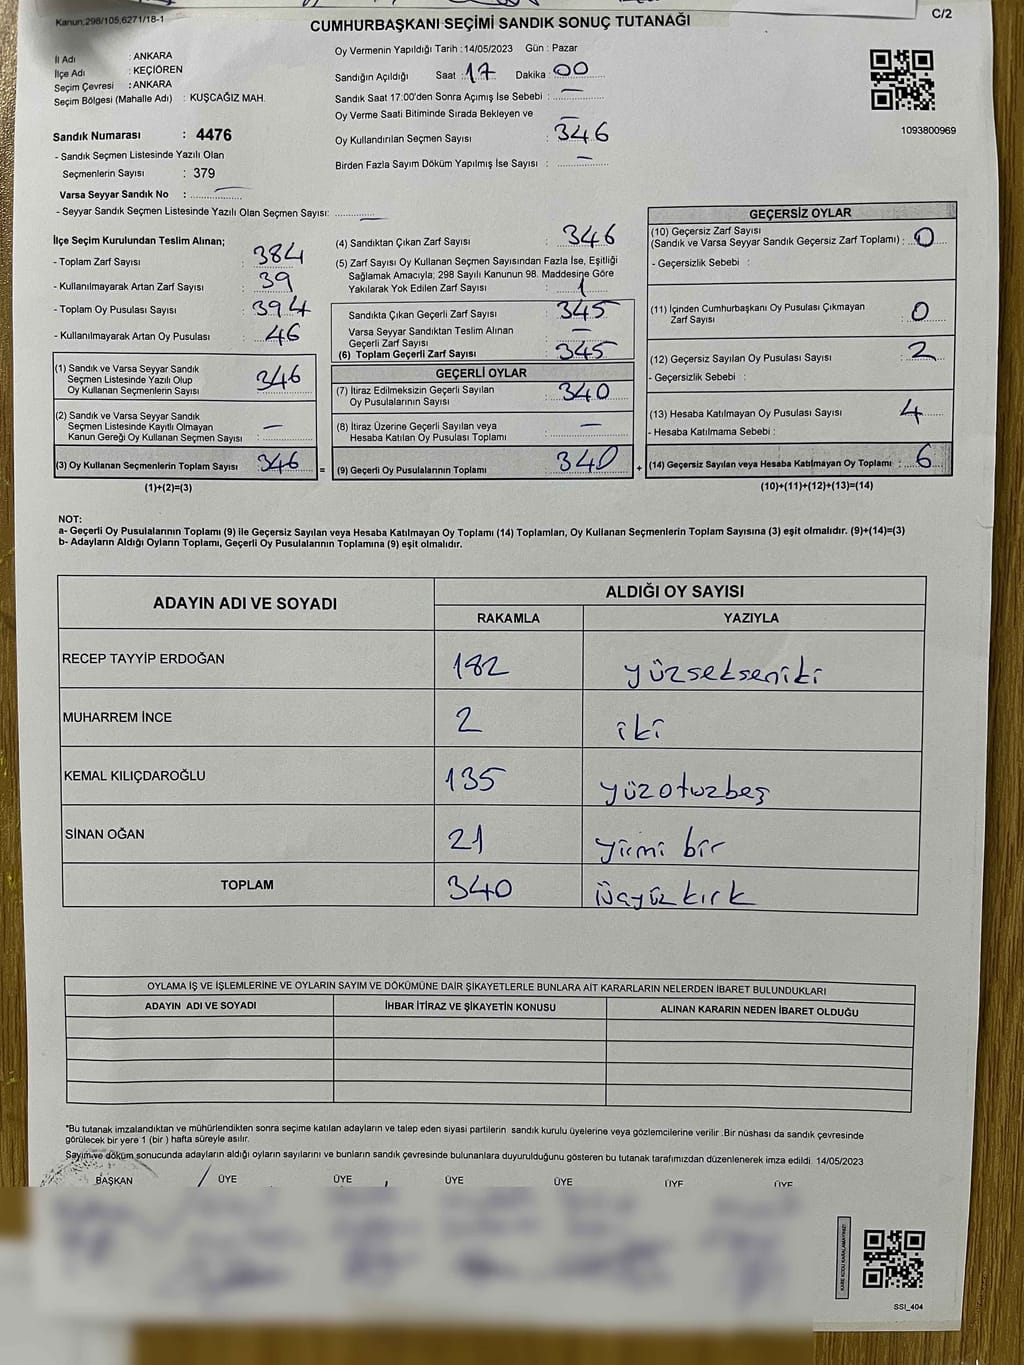 Kanun:298/105,6271/18-1
C/2
CUMHURBAŞKANI SEÇİMİ SANDIK SONUÇ TUTANAĞI
İl Adı : ANKARA
İlçe Adı : KEÇİÖREN
Seçim Çevresi : ANKARA
Seçim Bölgesi (Mahalle Adı) : KUŞCAĞIZ MAH.
Sandık Numarası : 4476
- Sandık Seçmen Listesinde Yazılı Olan
Seçmenlerin Sayısı : 379
Varsa Seyyar Sandık No :
- Seyyar Sandık Seçmen Listesinde Yazılı Olan Seçmen Sayısı:
Oy Vermenin Yapıldığı Tarih : 14/05/2023 Gün : Pazar
Sandığın Açıldığı Saat : 17 Dakika : 00
Sandık Saat 17:00'den Sonra Açımış İse Sebebi : —
Oy Verme Saati Bitiminde Sırada Bekleyen ve —
Oy Kullandırılan Seçmen Sayısı : 346
Birden Fazla Sayım Döküm Yapılmış İse Sayısı : —
1093800969
İlçe Seçim Kurulundan Teslim Alınan;
- Toplam Zarf Sayısı : 384
- Kullanılmayarak Artan Zarf Sayısı : 39
- Toplam Oy Pusulası Sayısı : 394
- Kullanılmayarak Artan Oy Pusulası : 46
(1) Sandık ve Varsa Seyyar Sandık
Seçmen Listesinde Yazılı Olup
Oy Kullanan Seçmenlerin Sayısı : 346
(2) Sandık ve Varsa Seyyar Sandık
Seçmen Listesinde Kayıtlı Olmayan
Kanun Gereği Oy Kullanan Seçmen Sayısı : —
(3) Oy Kullanan Seçmenlerin Toplam Sayısı : 346
(1)+(2)=(3)
=
(4) Sandıktan Çıkan Zarf Sayısı : 346
(5) Zarf Sayısı Oy Kullanan Seçmen Sayısından Fazla İse, Eşitliği
Sağlamak Amacıyla; 298 Sayılı Kanunun 98. Maddesine Göre
Yakılarak Yok Edilen Zarf Sayısı : 1
Sandıkta Çıkan Geçerli Zarf Sayısı : 345
Varsa Seyyar Sandıktan Teslim Alınan
Geçerli Zarf Sayısı : —
(6) Toplam Geçerli Zarf Sayısı : 345
GEÇERLİ OYLAR
(7) İtiraz Edilmeksizin Geçerli Sayılan
Oy Pusulalarının Sayısı : 340
(8) İtiraz Üzerine Geçerli Sayılan veya
Hesaba Katılan Oy Pusulası Toplamı : —
(9) Geçerli Oy Pusulalarının Toplamı : 340
+
GEÇERSİZ OYLAR
(10) Geçersiz Zarf Sayısı
(Sandık ve Varsa Seyyar Sandık Geçersiz Zarf Toplamı) : 0
- Geçersizlik Sebebi :
(11) İçinden Cumhurbaşkanı Oy Pusulası Çıkmayan
Zarf Sayısı : 0
(12) Geçersiz Sayılan Oy Pusulası Sayısı : 2
- Geçersizlik Sebebi :
(13) Hesaba Katılmayan Oy Pusulası Sayısı : 4
- Hesaba Katılmama Sebebi :
(14) Geçersiz Sayılan veya Hesaba Katılmayan Oy Toplamı : 6
(10)+(11)+(12)+(13)=(14)
NOT:
a- Geçerli Oy Pusulalarının Toplamı (9) ile Geçersiz Sayılan veya Hesaba Katılmayan Oy Toplamı (14) Toplamları, Oy Kullanan Seçmenlerin Toplam Sayısına (3) eşit olmalıdır. (9)+(14)=(3)
b- Adayların Aldığı Oyların Toplamı, Geçerli Oy Pusulalarının Toplamına (9) eşit olmalıdır.
ADAYIN ADI VE SOYADI
ALDIĞI OY SAYISI
RAKAMLA YAZIYLA
RECEP TAYYİP ERDOĞAN 182 yüzsekseniki
MUHARREM İNCE 2 iki
KEMAL KILIÇDAROĞLU 135 yüzotuzbeş
SİNAN OĞAN 21 yirmi bir
TOPLAM 340 üçyüz kırk
OYLAMA İŞ VE İŞLEMLERİNE VE OYLARIN SAYIM VE DÖKÜMÜNE DAİR ŞİKAYETLERLE BUNLARA AİT KARARLARIN NELERDEN İBARET BULUNDUKLARI
ADAYIN ADI VE SOYADI İHBAR İTİRAZ VE ŞİKAYETİN KONUSU ALINAN KARARIN NEDEN İBARET OLDUĞU
*Bu tutanak imzalandıktan ve mühürlendikten sonra seçime katılan adayların ve talep eden siyasi partilerin sandık kurulu üyelerine veya gözlemcilerine verilir .Bir nüshası da sandık çevresinde
görülecek bir yere 1 (bir ) hafta süreyle asılır.
Sayım ve döküm sonucunda adayların aldığı oyların sayılarını ve bunların sandık çevresinde bulunanlara duyurulduğunu gösteren bu tutanak tarafımızdan düzenlenerek imza edildi. 14/05/2023
BAŞKAN ÜYE ÜYE ÜYE ÜYE ÜYE ÜYE
KARE KODU KARALAMAYINIZ!
SSI_404